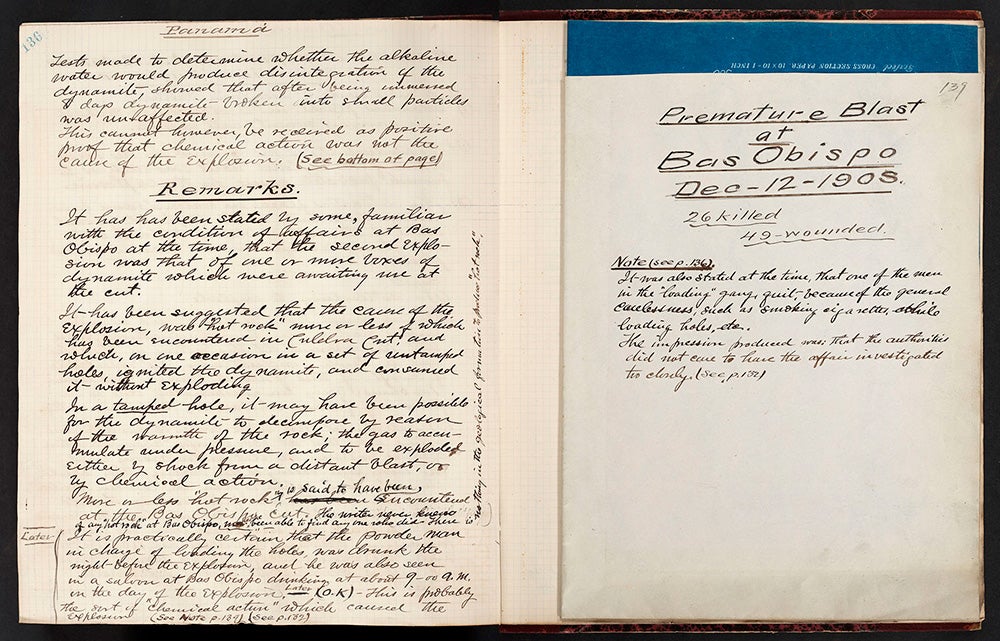 136
Panamá
Tests made to determine whether the alkaline
water would produce disintegration of the
dynamite, showed that after being immersed
days dynamite broken into small particles
was unaffected.
This cannot however, be received as positive
proof that chemical action was not the
cause of the explosion. (See bottom of page)
Remarks.
It has has been stated by some, familiar
with the condition of affairs at Bas
Obispo at the time, that the second explo-
sion was that of one or more boxes of
dynamite which were awaiting use at
the cut.
It has been suggested that the cause of the
explosion, was "hot rock" more or less of which
has been encountered in Culebra Cut and
which, on one occasion in a set of untamped
holes, ignited the dynamite, and consumed
it without exploding
In a tamped hole, it may have been possible
for the dynamite to decompose by reason
of the warmth of the rock; the gas to accu-
mulate under pressure, and to be exploded
either by shock from a distant blast, or
by chemical action.
More or less "hot rock" is said to have been encountered
at the Bas Obispo cut. The writer never knew
of any "hot rock" at Bas Obispo, nor been able to find any one who did. There
is nothing in the geological formation to produce "hot rock".
Later
It is practically certain that the powder man
in charge of loading the holes, was drunk the
night before the explosion, and he was also seen
in a saloon at Bas Obispo drinking at about 9-00 A.M.
on the day of the explosion. Later (O.K) - This is probably
the sort of "chemical action" which caused the
explosion (See Note p.139) (See p.132)
Scaled CROSS SECTION PAPER 10 x 10 - 1 INCH
139
Premature Blast
at
Bas Obispo
Dec-12-1908.
26 killed
49-wounded.
Note (see p.136).
It was also stated at the time, that one of the men
in the "loading" gang, quit, because of the general
carelessness, such as smoking cigarettes, while
loading holes, etc.
The impression produced was: that the authorities
did not care to have the affair investigated
too closely. (See p.132)